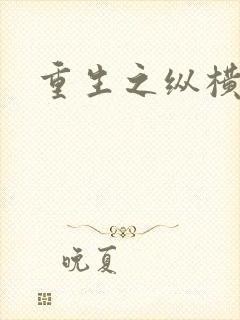 重生之纵横
晚夏